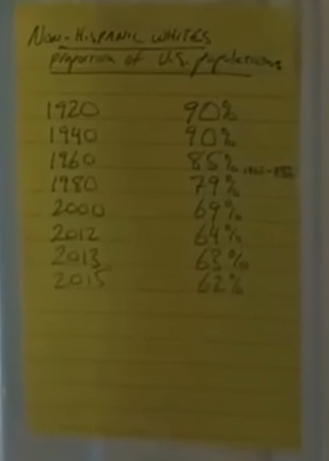 Non-Hispanic whites
proportion of U.S. populations
1920 90%
1940 90%
1960 85%
1980 79%
2000 69%
2012 64%
2013 63%
2015 62%